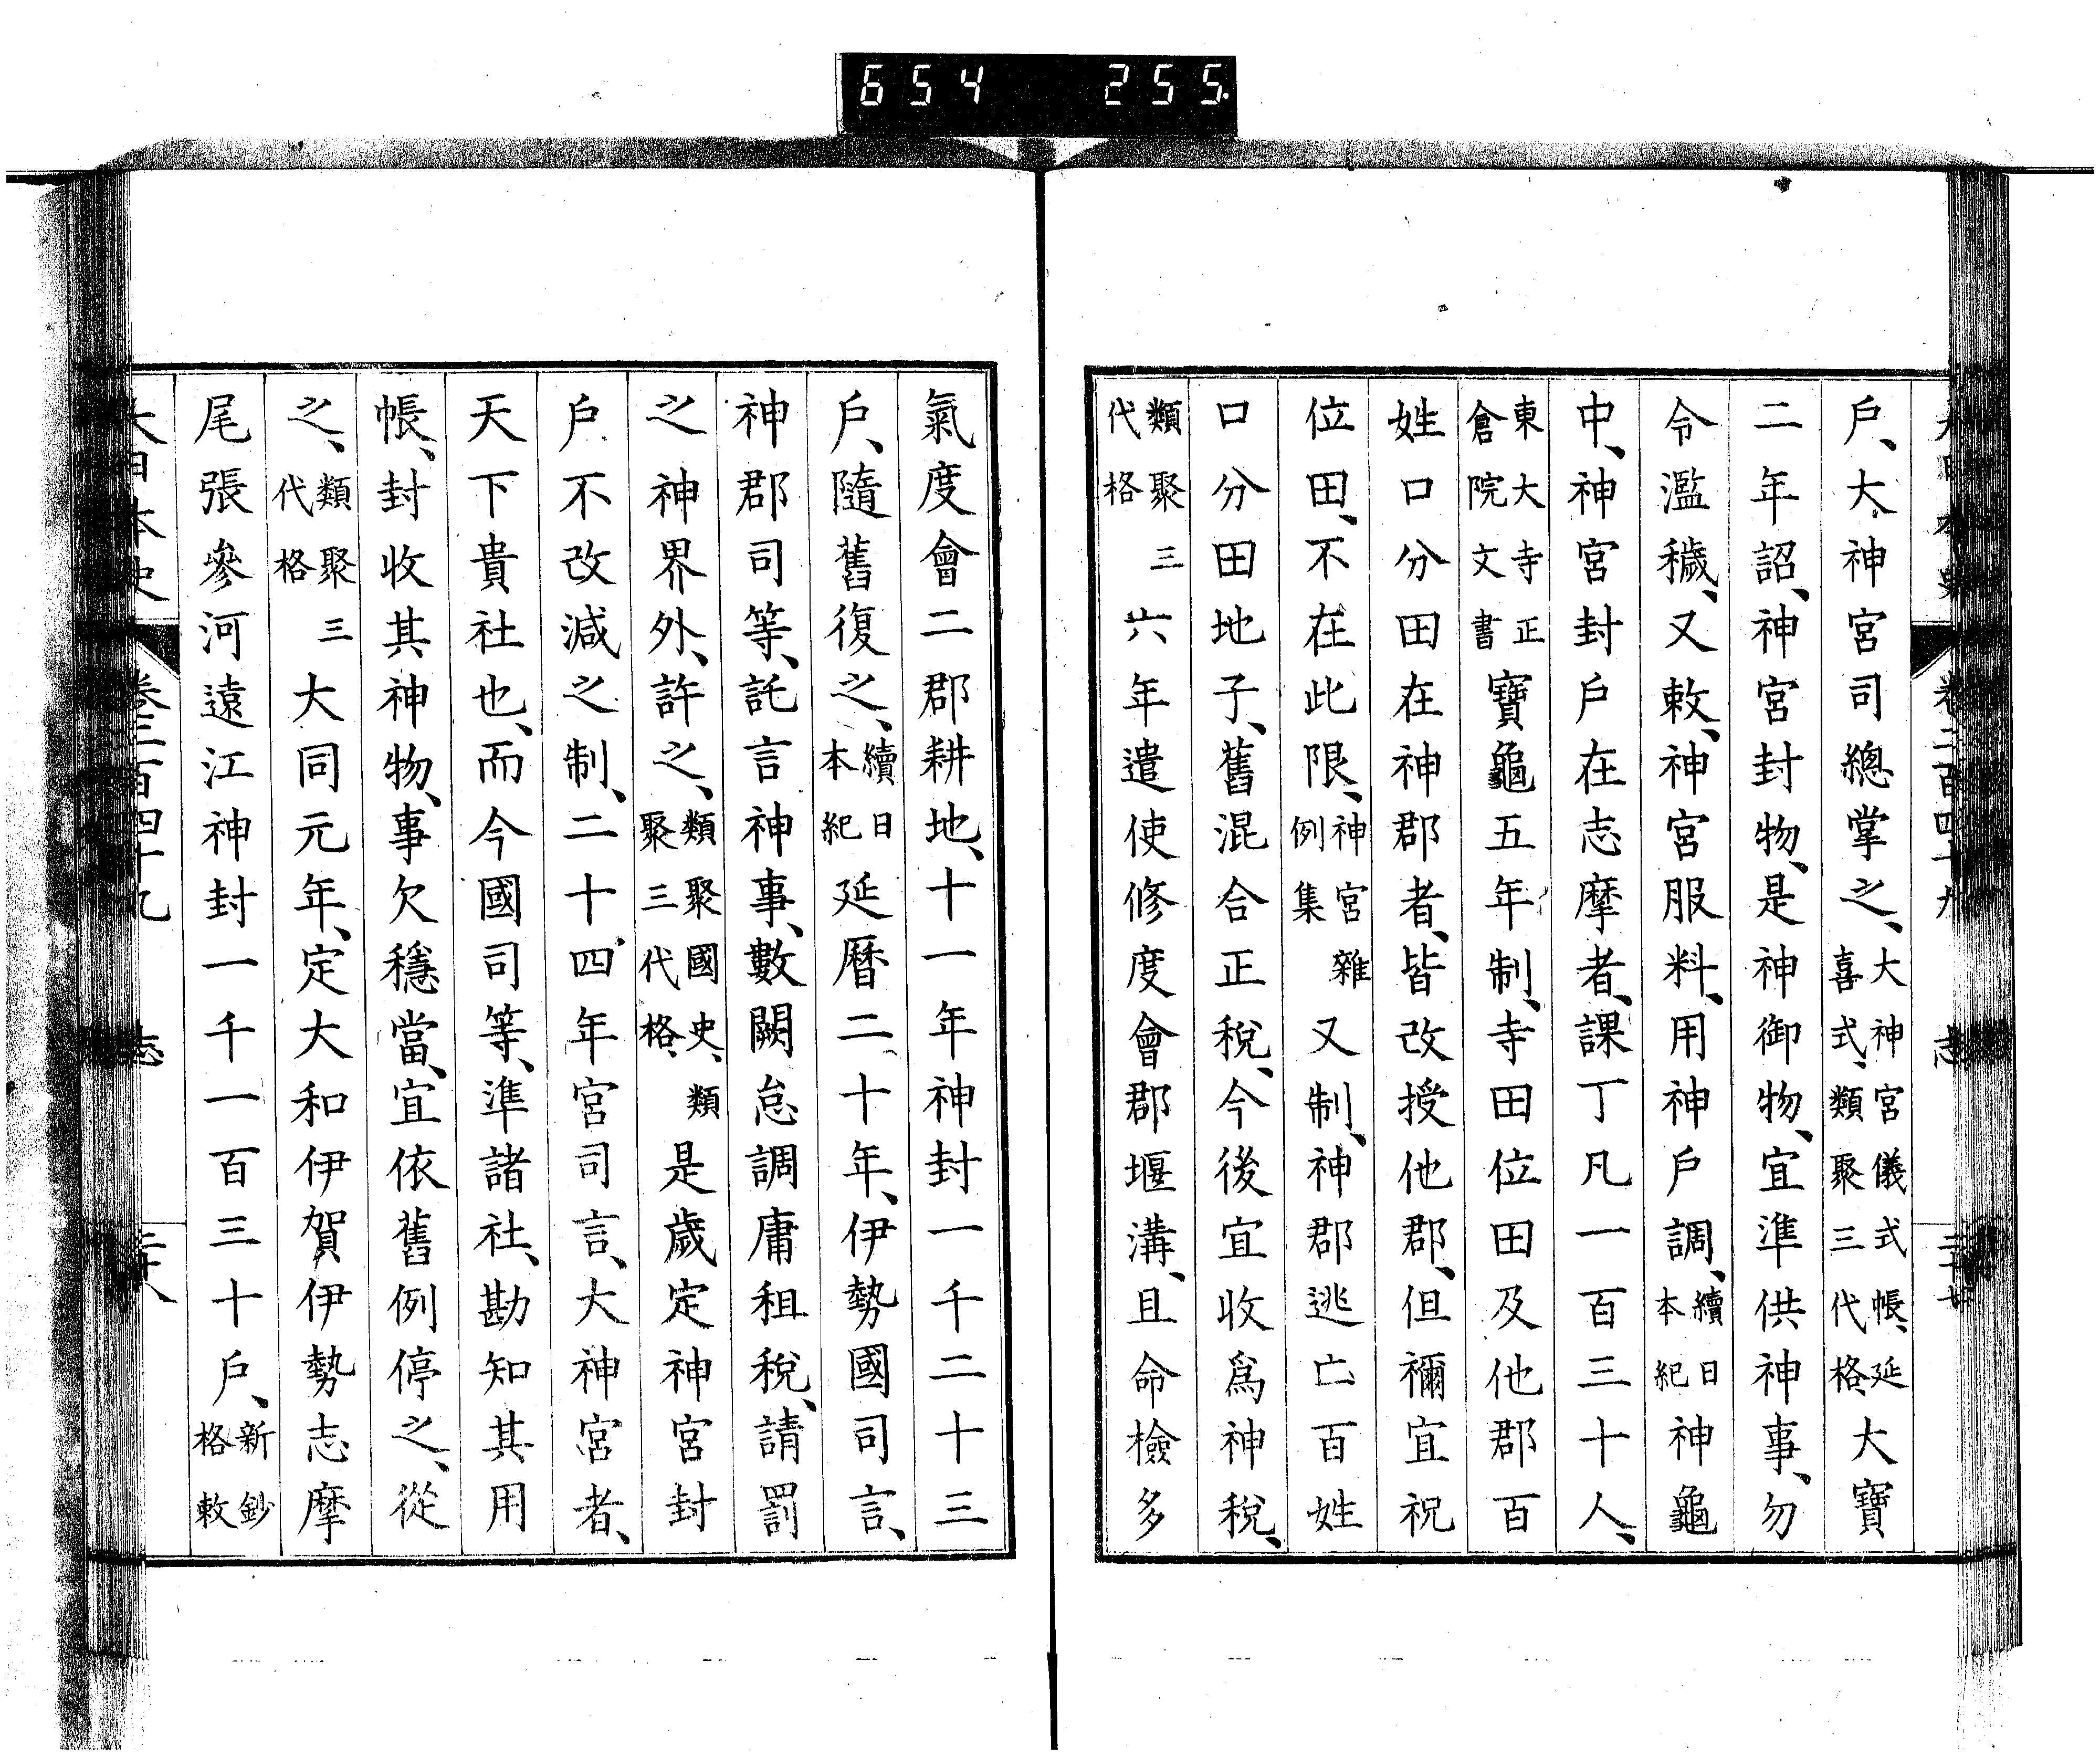 654 255.
戶、大神宮司總掌之、大神宮儀式帳、延喜式、類聚三代格大寶
二年詔、神宮封物、是神御物、宜準供神事、勿
令濫穢、又敕、神宮服料、用神戶調、續日本紀神龜
中、神宮封戶在志摩者、課丁凡一百三十人、
東大寺正倉院文書寶龜五年制、寺田位田及他郡百
姓口分田在神郡者、皆改授他郡、但禰宜祝
位田、不在此限、神宮雜例集又制、神郡逃亡百姓
口分田地子、舊混合正稅、今後宜收爲神稅、
類聚三代格六年遣使修度會郡堰溝、且命檢多
氣度會二郡耕地、十一年神封一千二十三
戶、隨舊復之、續日本紀延曆二十年、伊勢國司言、
神郡司等、託言神事、數闕怠調庸租稅、請罰
之神界外、許之、類聚國史、類聚三代格、是歲定神宮封
戶不改減之制、二十四年宮司言、大神宮者、
天下貴社也、而今國司等、準諸社、勘知其用
帳、封收其神物、事欠穩當、宜依舊例停之、從
之、類聚三代格大同元年、定大和伊賀伊勢志摩
尾張參河遠江神封一千一百三十戶、新鈔格敕
大日本史 卷二百四十九 志